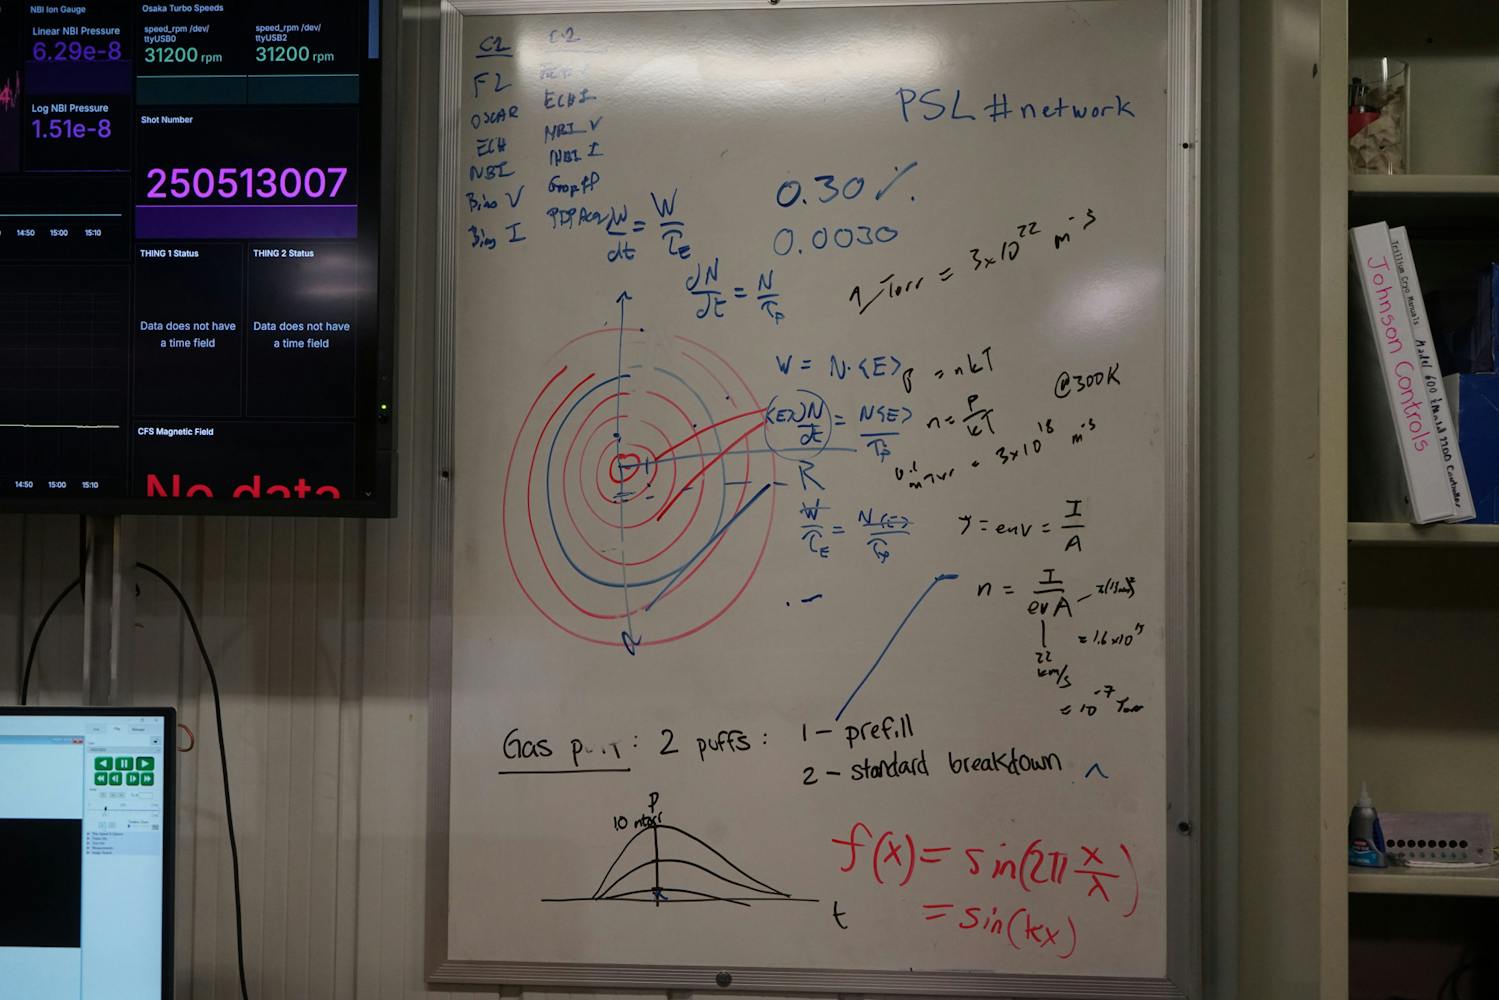 NBI Ion Gauge
Linear NBI Pressure
6.29e-8
Log NBI Pressure
1.51e-8
14:50 15:00 15:10
14:50 15:00 15:10
Osaka Turbo Speeds
speed_rpm /dev/
ttyUSB0
31200 rpm
speed_rpm /dev/
ttyUSB2
31200 rpm
Shot Number
250513007
THING 1 Status
Data does not have
a time field
THING 2 Status
Data does not have
a time field
CFS Magnetic Field
No data
C1
F2
OSCAR
ECH
NBI
Bias V
Bias I
C2
ECH I
NBI V
NBI I
PSL#network
0.30%
0.0030
dW/dt = W/τE
dN/dt = N/τp
1 Torr = 3x10^22 m^-3
W = N·<E>
p = nkT
@300K
<E>dN/dt = N<E>/τp
n = P/kT
0.1 mTorr = 3x10^18 m^-3
R
W/τE = N<E>/τp
J = env = I/A
n = I/evA
22 km/s
= 10^-7 Torr
Gas puff: 2 puffs: 1 – prefill
2 – standard breakdown
P
t
f(x) = sin(2π x/λ)
= sin(kx)
Johnson Controls
Trillium Cryo Manuals